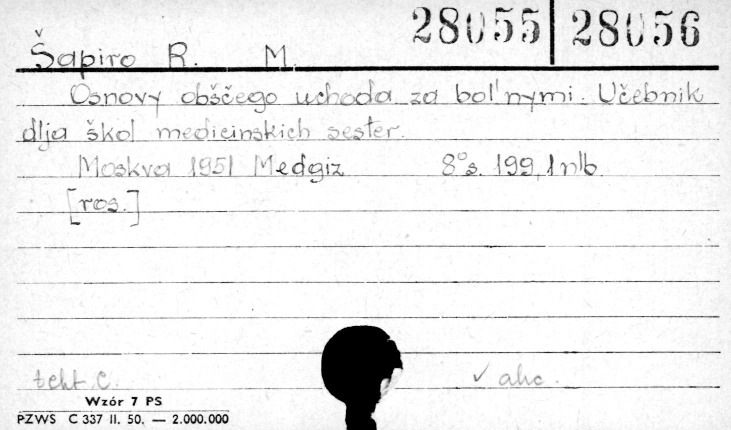 28055 28056
Šapiro R. M.
Osnovy obščego uchoda za bol'nymi. Učebnik
dlja škol medicinskich sester.
Moskva 1951 Medgiz 8° s. 199, 1 nlb.
[ros.]
Wzór 7 PS
PZWS C 337 II. 50. — 2.000.000